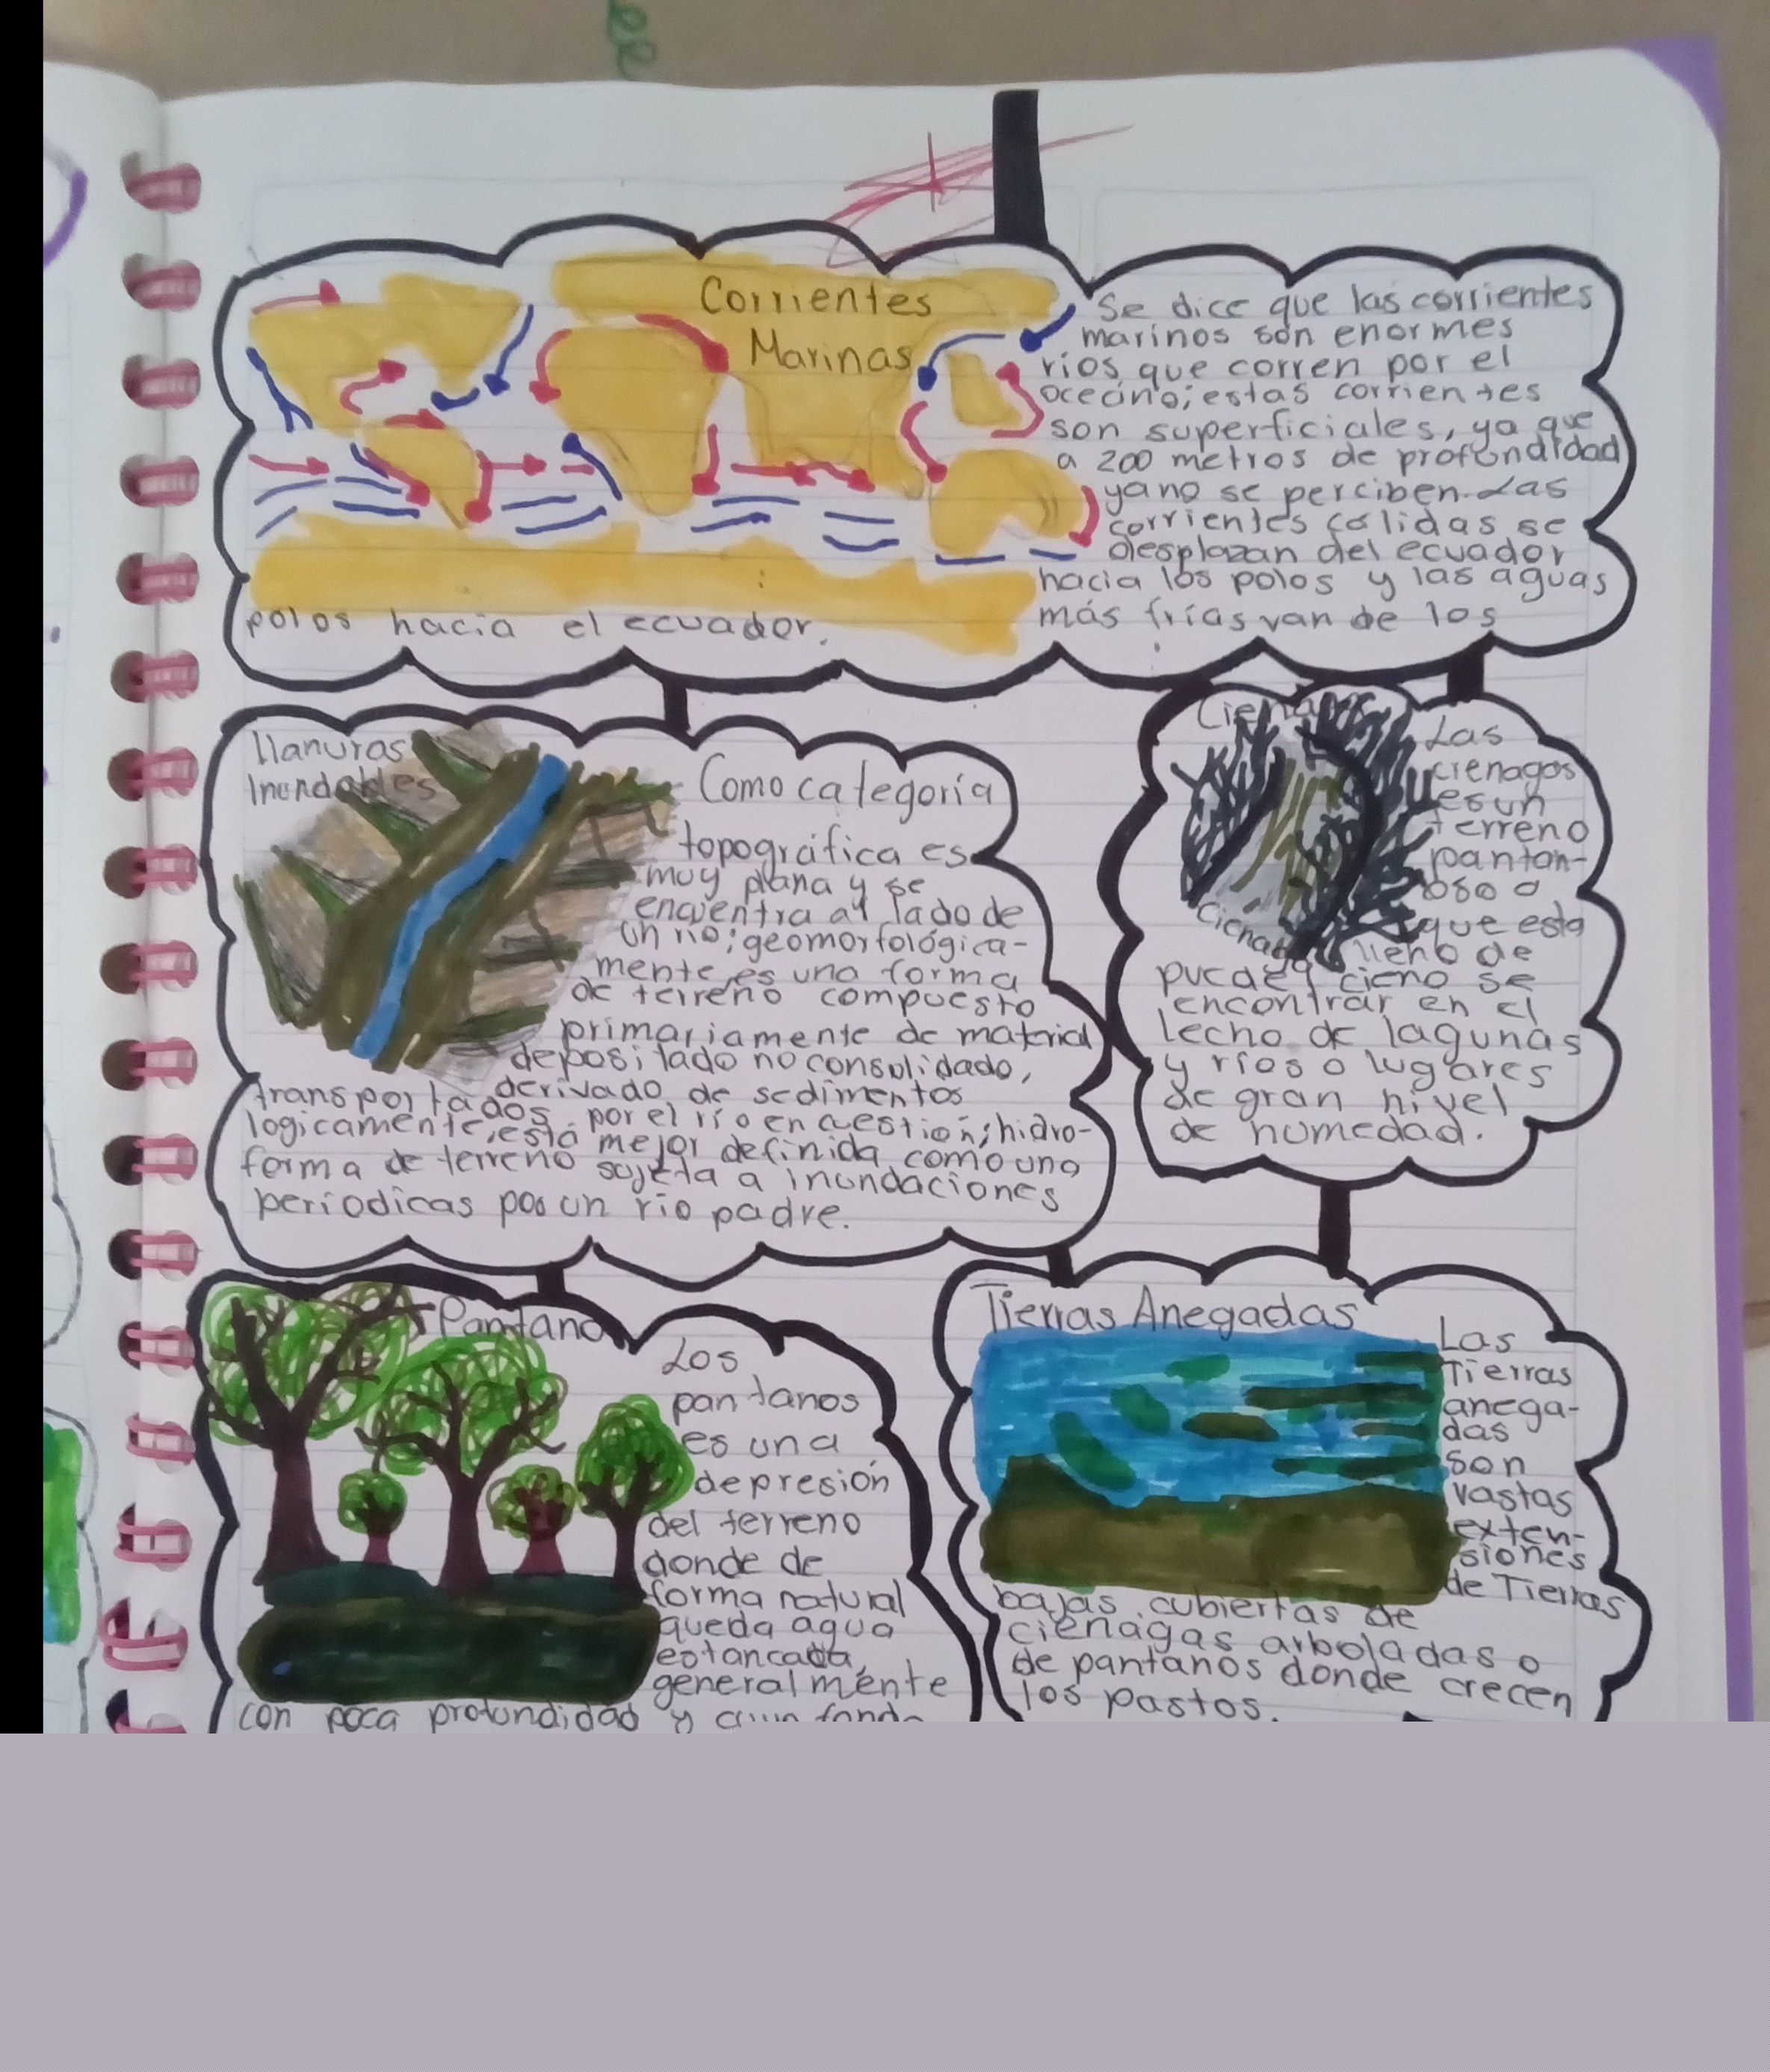 Corrientes
Marinas
Se dice que las corrientes
marinos son enormes
ríos que corren por el
oceáno; estas corrientes
son superficiales, ya que
a 200 metros de profundidad
ya no se perciben. Las
corrientes calidas se
desplazan del ecuador
hacia los polos y las aguas
más frías van de los
polos hacia el ecuador.
llanuras
Inundables
Como categoría
topográfica es
muy plana y se
encuentra al lado de
un río; geomorfológica-
mente es una forma
de terreno compuesto
primariamente de material
depositado no consolidado,
derivado de sedimentos
transportados por el río en cuestión; hidro-
logicamente, está mejor definida como una
forma de terreno sujeta a inundaciones
períodicas por un río padre.
Cienaga
Cienaga
Las
cienagas
es un
terreno
pantan-
oso o
que esta
lleno de
cieno se
puede
encontrar en el
lecho de lagunas
y ríos o lugares
de gran nivel
de humedad.
Pantano
Los
pantanos
es una
depresión
del terreno
donde de
forma natural
queda agua
estancada,
generalmente
con poca profundidad y
Tierras Anegadas
Las
Tierras
anega-
das
son
vastas
exten-
siones
de Tierras
bajas cubiertas de
cienagas arboladas o
de pantanos donde crecen
los pastos.